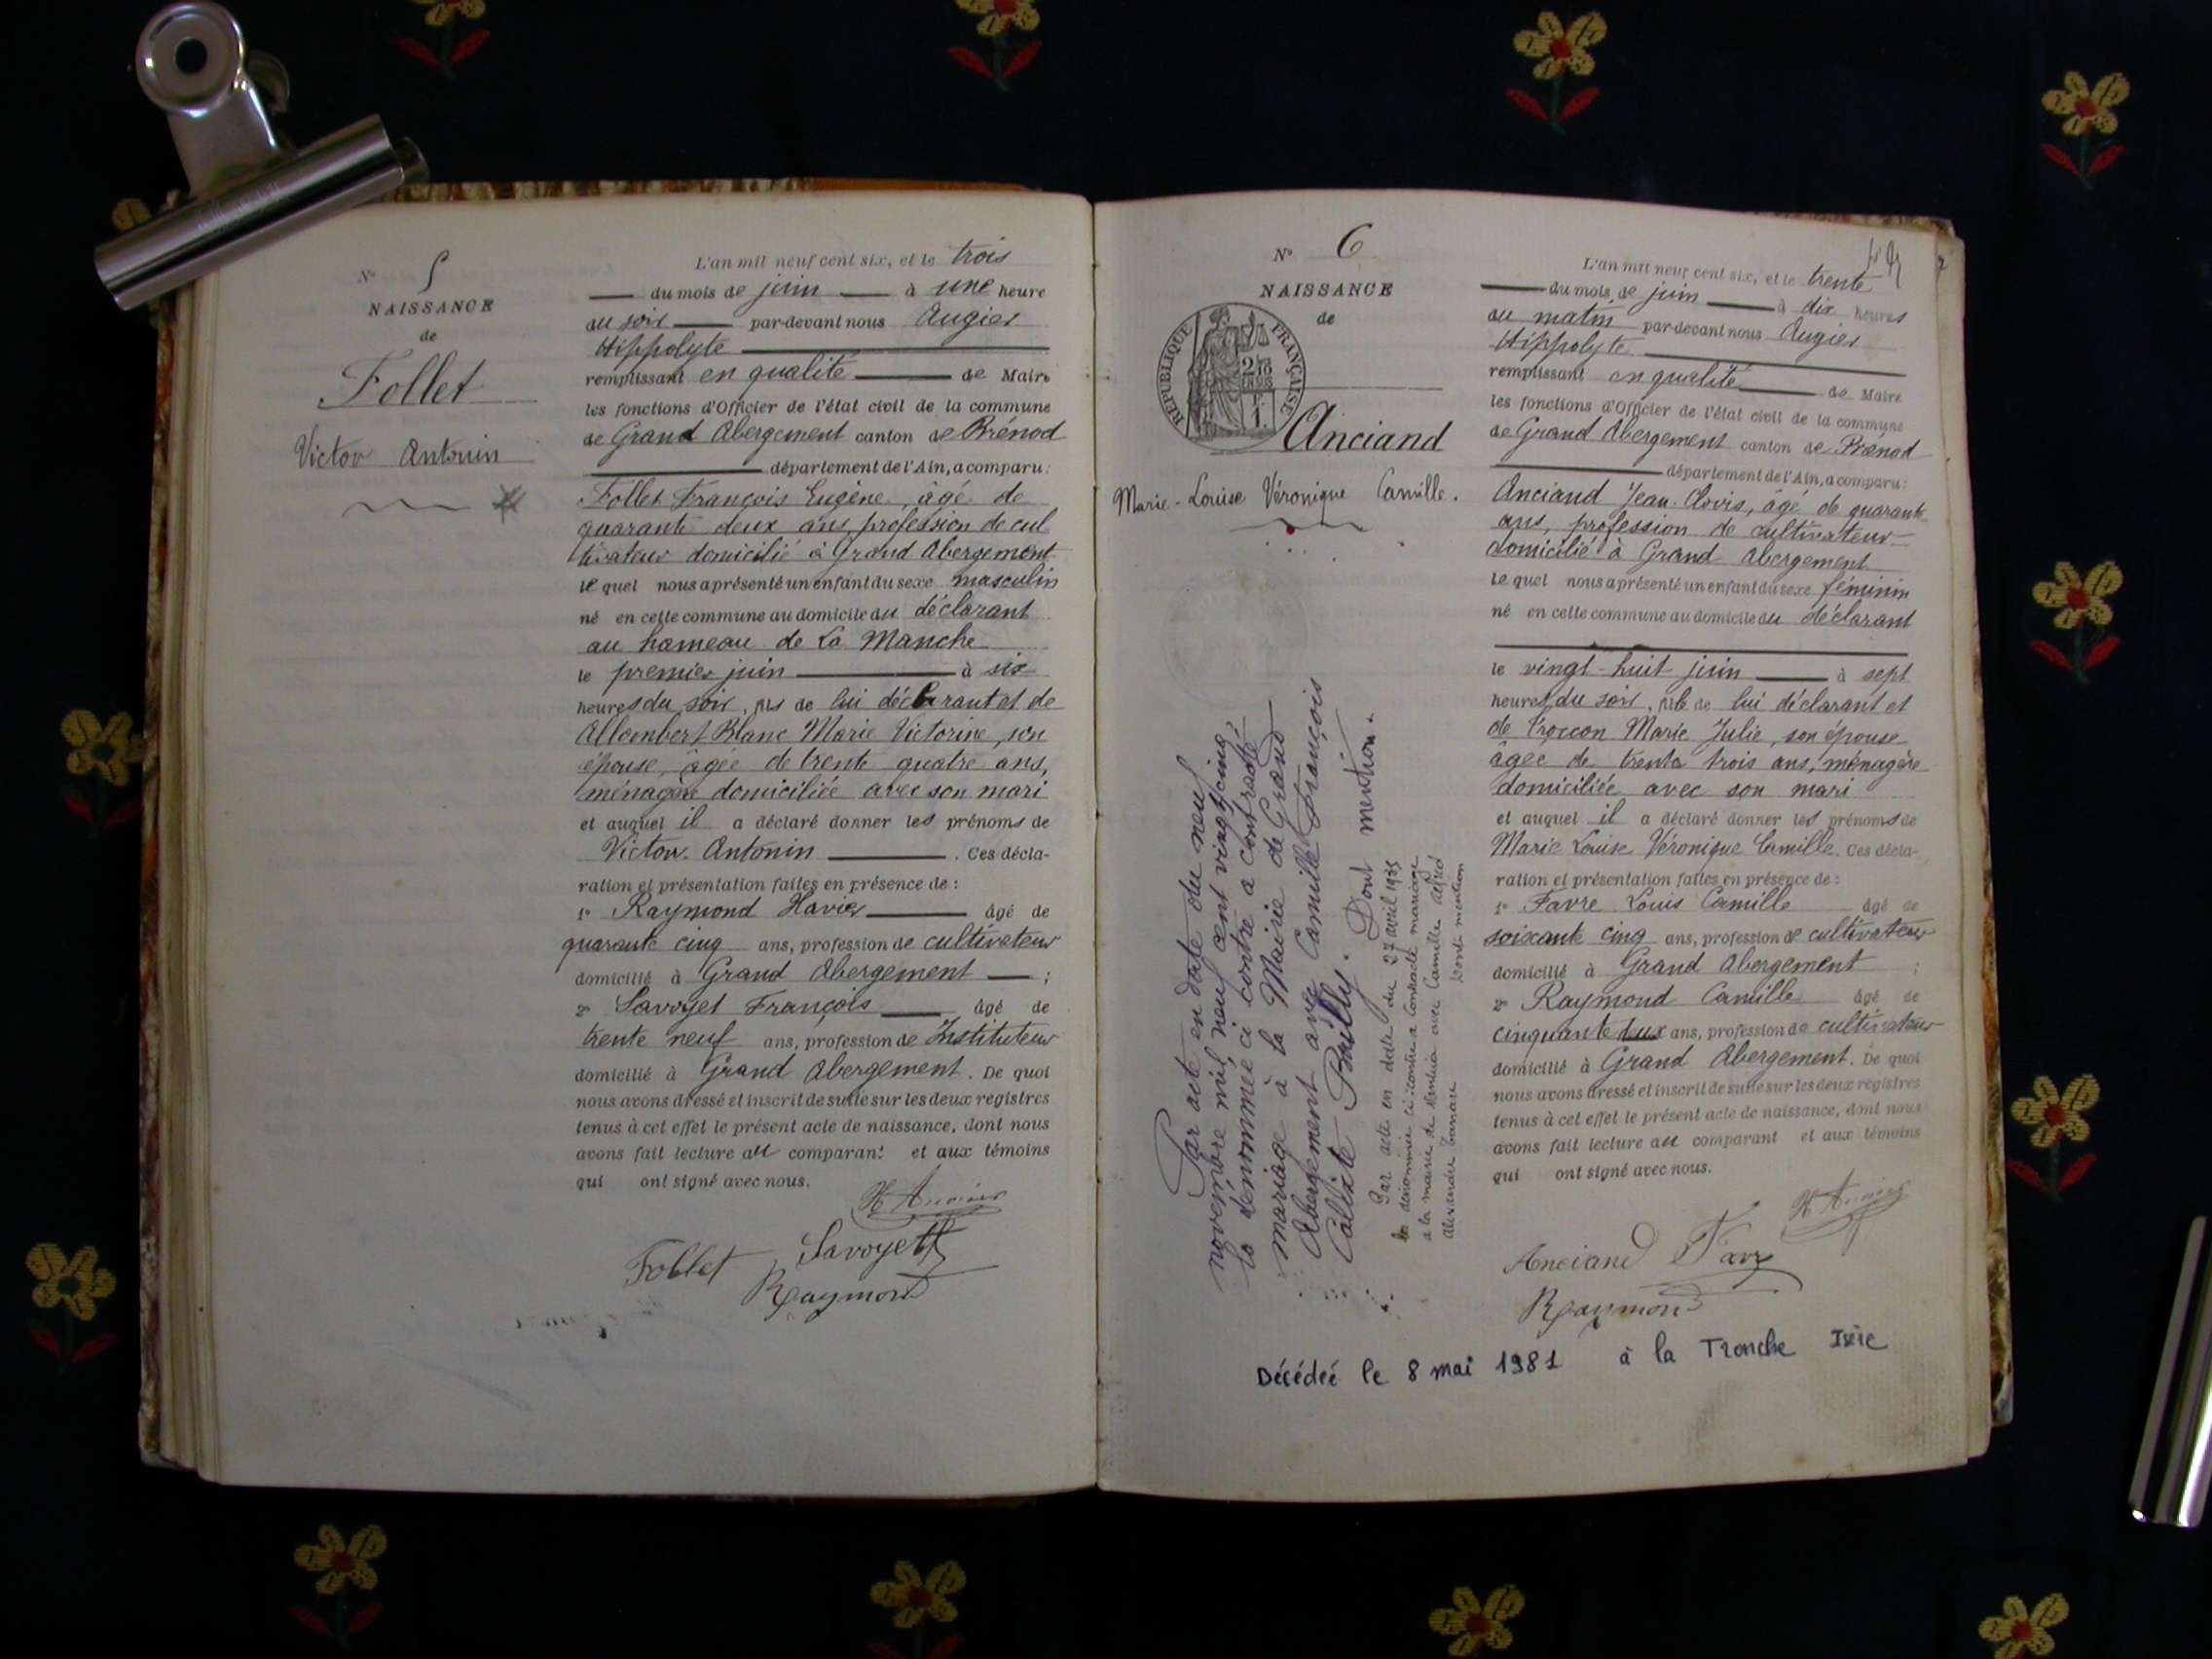 N° 5
NAISSANCE
de
Follet
Victor Antonin
L'an mil neuf cent six, et le trois
du mois de juin à une heure
du soir par-devant nous Augier
Hippolyte
remplissant en qualité de Maire
les fonctions d'Officier de l'état civil de la commune
de Grand Abergement canton de Brénod
département de l'Ain, a comparu :
Follet François Eugène, âgé de
quarante deux ans, profession de cul
tivateur domicilié à Grand Abergement
lequel nous a présenté un enfant du sexe masculin
né en cette commune au domicile du déclarant
au hameau de La Manche
le premier juin à six
heures du soir, fils de lui déclarant et de
Allombert Blanc Marie Victorine, son
épouse, âgée de trente quatre ans,
ménagère domiciliée avec son mari
et auquel il a déclaré donner les prénoms de
Victor Antonin . Ces décla-
ration et présentation faites en présence de :
1° Raymond Xavier âgé de
quarante cinq ans, profession de cultivateur
domicilié à Grand Abergement ;
2° Savoyet François âgé de
trente neuf ans, profession de Instituteur
domicilié à Grand Abergement. De quoi
nous avons dressé et inscrit de suite sur les deux registres
tenus à cet effet le présent acte de naissance, dont nous
avons fait lecture au comparant et aux témoins
qui ont signé avec nous.
H Augier
Follet Savoyet
Raymond
N° 6
NAISSANCE
de
RÉPUBLIQUE FRANÇAISE
Anciand
Marie-Louise Véronique Camille.
Par acte en date du neuf
novembre mil neuf cent vingt cinq,
la dénommée ci contre a contracté
mariage à la Mairie de Grand
Abergement avec Camille François
Calixte Bailly. Dont mention.
Par acte en date du 27 avril 1935
la dénommée ci-contre a contracté mariage
a la mairie de avec Camille Alfred
Alexandre Dont mention
L'an mil neuf cent six, et le trente
du mois de juin à dix heures
du matin par-devant nous Augier
Hippolyte
remplissant en qualité de Maire
les fonctions d'Officier de l'état civil de la commune
de Grand Abergement canton de Brénod
département de l'Ain, a comparu :
Anciand Jean-Clovis, âgé de quarante
ans, profession de cultivateur
domicilié à Grand Abergement
lequel nous a présenté un enfant du sexe féminin
né en cette commune au domicile du déclarant
le vingt-huit juin à sept
heures du soir, fille de lui déclarant et
de Troccon Marie Julie, son épouse
âgée de trente trois ans, ménagère
domiciliée avec son mari
et auquel il a déclaré donner les prénoms de
Marie Louise Véronique Camille. Ces décla-
ration et présentation faites en présence de :
1° Favre Louis Camille âgé de
soixante cinq ans, profession de cultivateur
domicilié à Grand Abergement ;
2° Raymond Camille âgé de
cinquante deux ans, profession de cultivateur
domicilié à Grand Abergement. De quoi
nous avons dressé et inscrit de suite sur les deux registres
tenus à cet effet le présent acte de naissance, dont nous
avons fait lecture au comparant et aux témoins
qui ont signé avec nous.
H Augier
Anciand Favre
Raymond
Décédée le 8 mai 1981 à la Tronche Isère